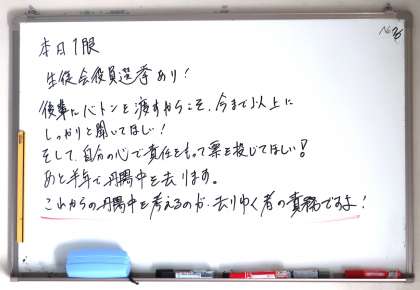 本日1限
生徒会役員選挙あり!
後輩にバトンを渡すからこそ、今まで以上に
しっかりと聞いてほしい!
そして、自分の心で責任をもって票を投じてほしい!
あと半年で丹陽中を去ります。
これからの丹陽中を考えるのが、去りゆく者の責務ですよ!